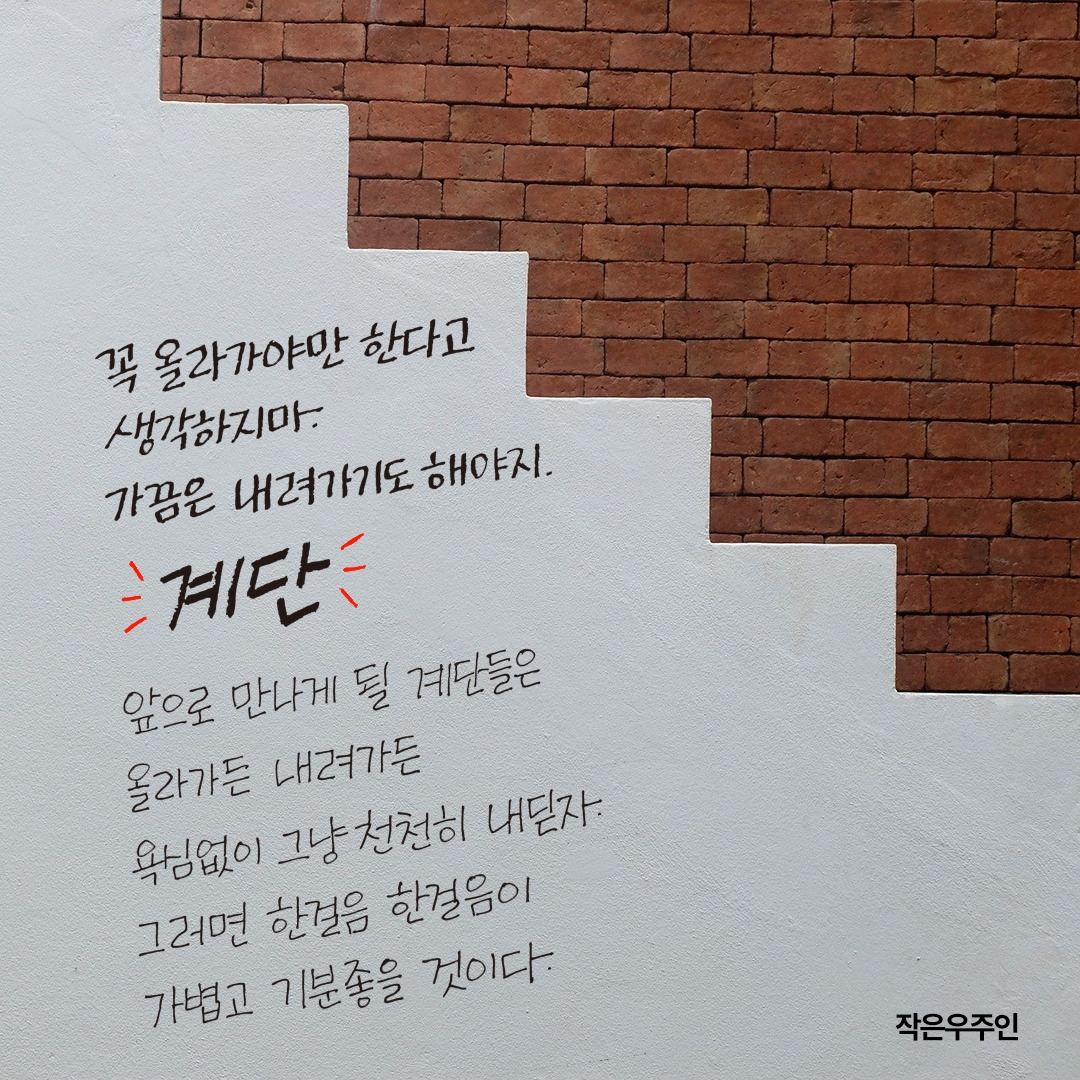 꼭 올라가야만 한다고
생각하지마.
가끔은 내려가기도 해야지.
계단
앞으로 만나게 될 계단들은
올라가든 내려가든
욕심없이 그냥 천천히 내딛자.
그러면 한걸음 한걸음이
가볍고 기분좋을 것이다.
작은우주인